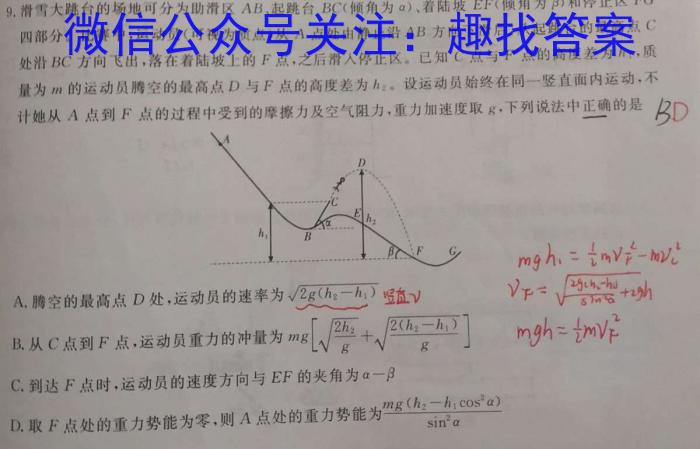 9. 滑雪大跳台的场地可分为助滑区 AB、起跳台 BC(倾角为 α)、着陆坡 EF(倾角为 β)和停止区 FG
四部分
微信公众号关注：趣找答案
处沿 BC 方向飞出,落在着陆坡上的 F 点,之后滑入停止区。已知 C 点与 F 点的高度差为 h₁,质
量为 m 的运动员腾空的最高点 D 与 F 点的高度差为 h₂。设运动员始终在同一竖直面内运动,不
计她从 A 点到 F 点的过程中受到的摩擦力及空气阻力,重力加速度取 g,下列说法中正确的是
BD
A
D
C
h₁
B
α
E
h₂
β
F
G
mgh₁ = ½mv_F² - mv_C²
mgh = ½mv_F²
A. 腾空的最高点 D 处,运动员的速率为 √(2g(h₂-h₁)) 竖直v
B. 从 C 点到 F 点,运动员重力的冲量为 mg[√(2h₂/g) + √(2(h₂-h₁)/g)]
C. 到达 F 点时,运动员的速度方向与 EF 的夹角为 α-β
D. 取 F 点处的重力势能为零,则 A 点处的重力势能为 mg(h₂-h₁cos²α)/sin²α